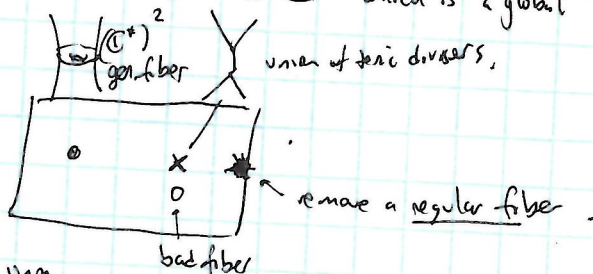 which is a global
(ℂ*)²
gen. fiber
union of toric divisors.
x
0
remove a regular fiber.
bad fiber